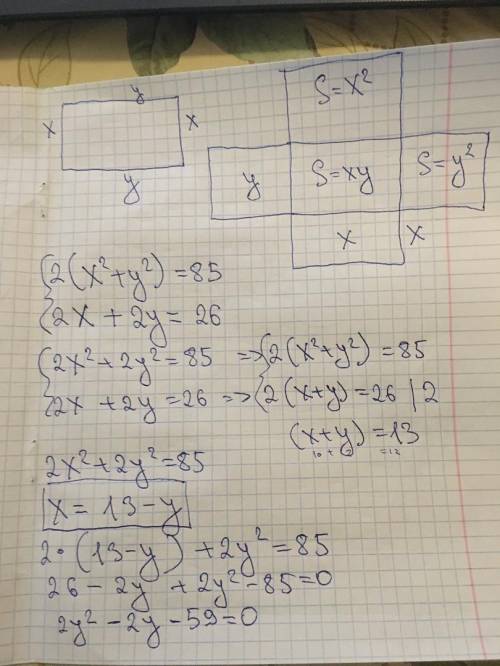 y
x x
y
S=x²
y S=xy S=y²
x x
{2(x²+y²)=85
{2x+2y=26
{2x²+2y²=85 => {2(x²+y²)=85
{2x+2y=26 => {2(x+y)=26 | 2
(x+y)=13
2x²+2y²=85
x=13-y
2·(13-y)+2y²=85
26-2y+2y²-85=0
2y²-2y-59=0